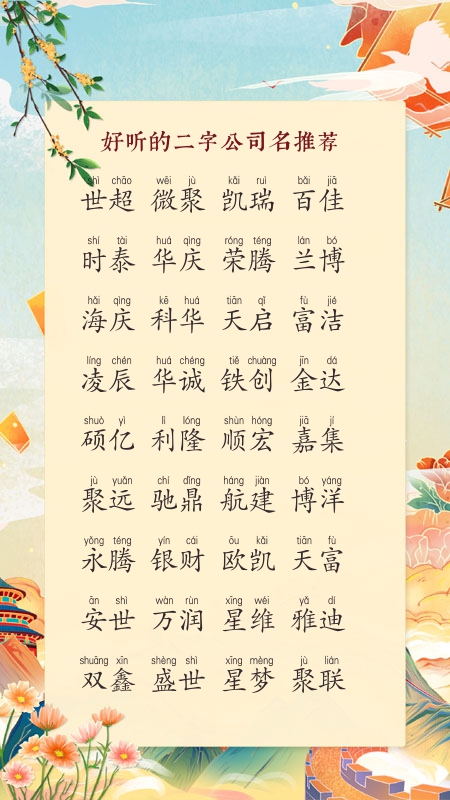 好听的二字公司名推荐
shì chāo wēi jù kǎi ruì bǎi jiā
世超 微聚 凯瑞 百佳
shí tài huá qìng róng téng lán bó
时泰 华庆 荣腾 兰博
hǎi qìng kē huá tiān qǐ fù jié
海庆 科华 天启 富洁
líng chén huá chéng tiě chuàng jīn dá
凌辰 华诚 铁创 金达
shuò yì lì lóng shùn hóng jiā jí
硕亿 利隆 顺宏 嘉集
jù yuǎn chí dǐng háng jiàn bó yáng
聚远 驰鼎 航建 博洋
yǒng téng yín cái ōu kǎi tiān fù
永腾 银财 欧凯 天富
ān shì wàn rùn xīng wéi yǎ dí
安世 万润 星维 雅迪
shuāng xīn shèng shì xīng mèng jù lián
双鑫 盛世 星梦 聚联